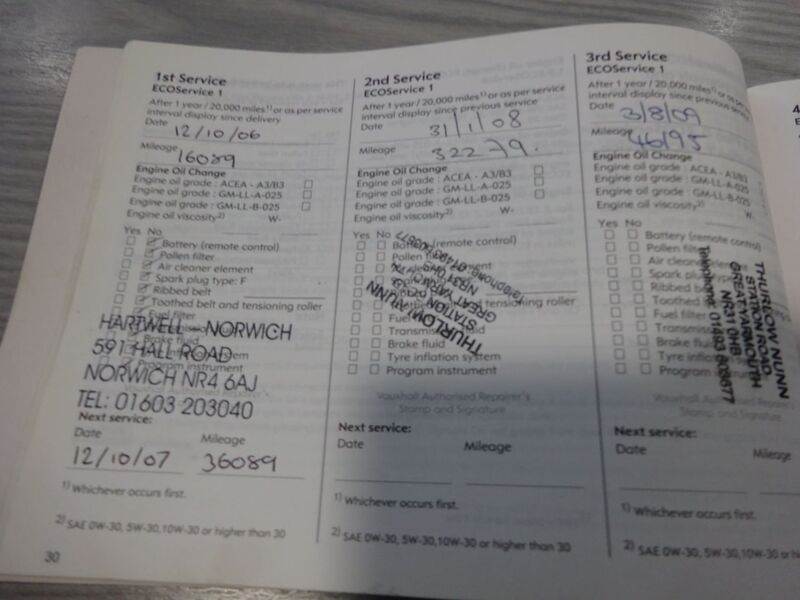 1st Service
ECOService 1
After 1 year / 20,000 miles¹⁾ or as per service
interval display since delivery
Date
12/10/06
Mileage
16089
Engine Oil Change
Engine oil grade : ACEA - A3/B3
Engine oil grade : GM-LL-A-025
Engine oil grade : GM-LL-B-025
Engine oil viscosity²⁾ W-
Yes No
Battery (remote control)
Pollen filter
Air cleaner element
Spark plug type: F
Ribbed belt
Toothed belt and tensioning roller
Fuel filter
Brake fluid
Program instrument
HARTWELL - NORWICH
591 HALL ROAD
NORWICH NR4 6AJ
TEL: 01603 203040
Next service:
Date Mileage
12/10/07 36089
¹⁾ Whichever occurs first.
²⁾ SAE 0W-30, 5W-30,10W-30 or higher than 30
30
2nd Service
ECOService 1
After 1 year / 20,000 miles¹⁾ or as per service
interval display since previous service
Date
31/1/08
Mileage
32279.
Engine Oil Change
Engine oil grade : ACEA - A3/B3
Engine oil grade : GM-LL-A-025
Engine oil grade : GM-LL-B-025
Engine oil viscosity²⁾ W-
Yes No
Battery (remote control)
Pollen
element
tensioning roller
Fuel
Brake fluid
Tyre inflation system
Program instrument
THURLOW NUNN
STATION
GREAT
Vauxhall Authorised Repairer's
Stamp and Signature
Next service:
Date Mileage
¹⁾ Whichever occurs first.
²⁾ SAE 0W-30, 5W-30,10W-30 or higher than 30
3rd Service
ECOService 1
After 1 year / 20,000 miles¹⁾ or as per
interval display since previous service
Date
3/8/09
Mileage
46195
Engine Oil Change
Engine oil grade : ACEA - A3/B3
Engine oil grade : GM-LL-A-025
Engine oil grade : GM-LL-B-025
Engine oil viscosity²⁾ W-
Yes No
Battery (remote control)
Pollen
Air cleaner
Spark plug
Ribbed
Toothed
Fuel filter
Brake fluid
Tyre
Program
THURLOW NUNN
STATION ROAD
GREAT YARMOUTH
NR31 0HB
Telephone 01493 603677
Vauxhall Authorised Repairer's
Stamp and Signature
Next service:
Date Mileage
¹⁾ Whichever occurs first.
²⁾ SAE 0W-30, 5W-30,10W-30 or
4